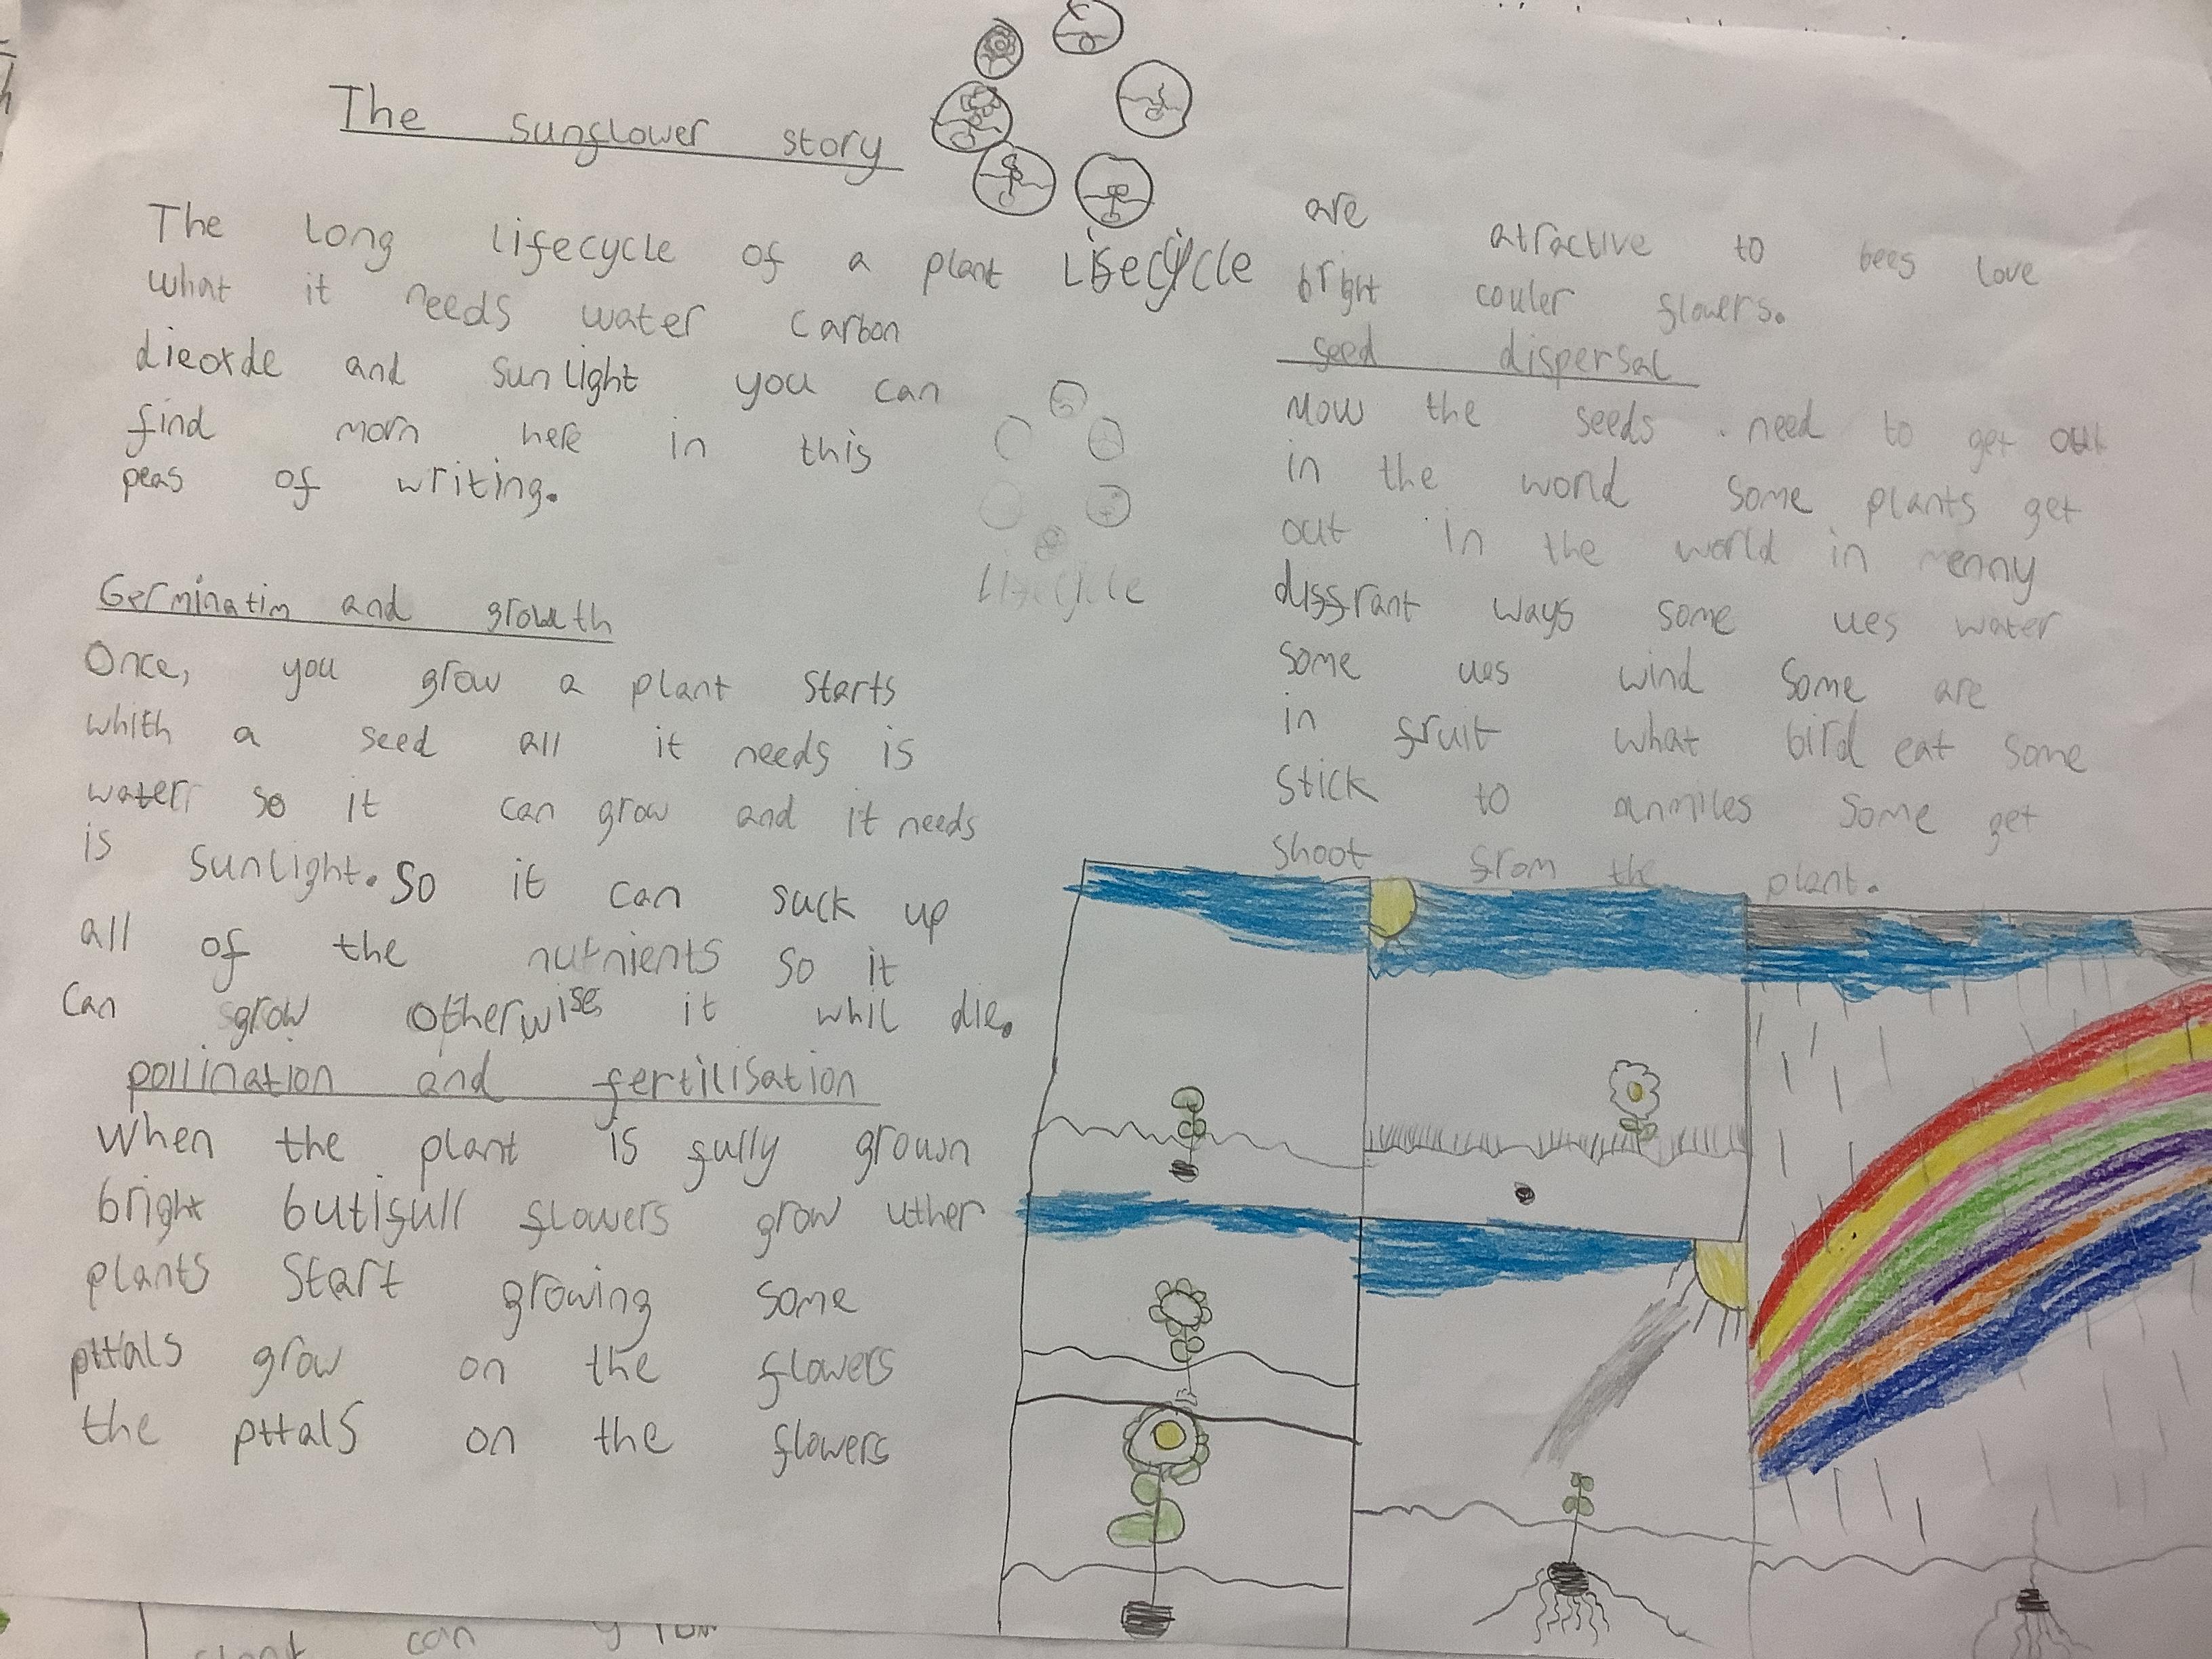 The sunflower story
The long lifecycle of a plant
what it needs water carbon
dieoxde and sunlight you can
find morn here in this
peas of writing.
Lifecycle
Lifecycle
Germinatin and growth
Once, you grow a plant starts
whith a seed all it needs is
water so it can grow and it needs
is sunlight. So it can suck up
all of the nutrients so it
can grow otherwise it whil die.
pollination and fertilisation
When the plant is fully grown
bright butifull flowers grow uther
plants start growing some
pttals grow on the flowers
the pttals on the flowers
are atractive to bees love
bright couler flowers.
seed dispersal
Now the seeds need to get out
in the world some plants get
out in the world in menny
diffrant ways some ues water
some ues wind some are
in fruit what bird eat some
stick to anmiles some get
shoot from the plant.
can